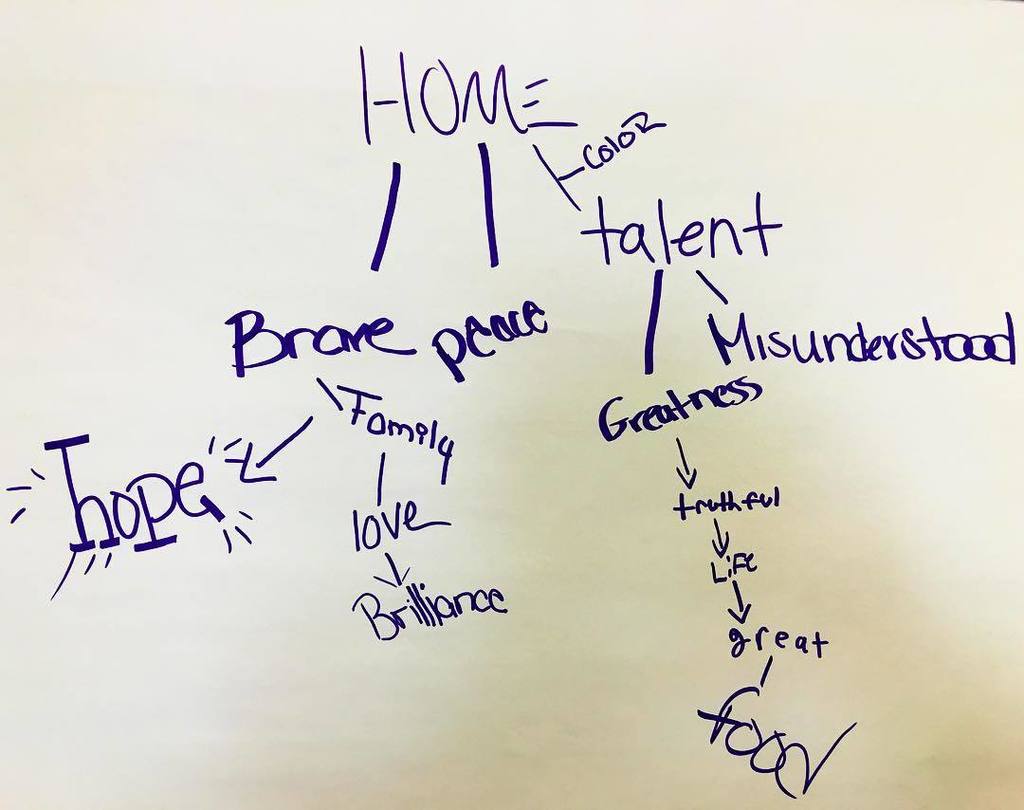 HOME
COLOR
talent
Brave peace
Misunderstood
Family
Greatness
hope
truthful
love
LiFe
Brilliance
great
food